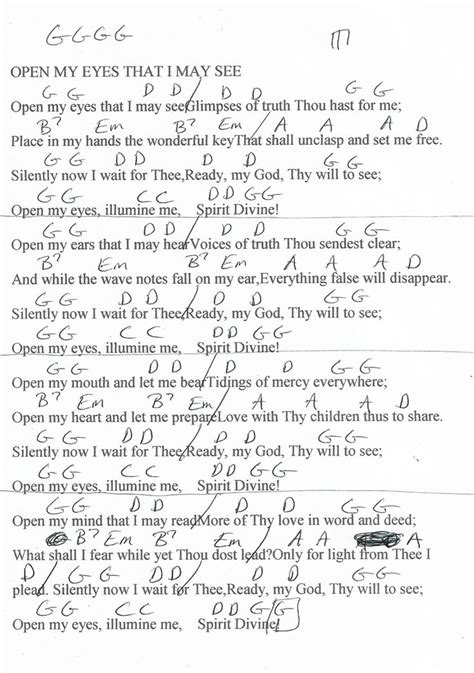 G G G G
OPEN MY EYES THAT I MAY SEE
G G D D D D G G
Open my eyes that I may see/Glimpses of truth Thou hast for me;
B7 Em B7 Em A A A D
Place in my hands the wonderful key/That shall unclasp and set me free.
G G D D D D G G
Silently now I wait for Thee,/Ready, my God, Thy will to see;
G G C C D D G G
Open my eyes, illumine me, Spirit Divine!
G G D D D D G G
Open my ears that I may hear/Voices of truth Thou sendest clear;
B7 Em B7 Em A A A D
And while the wave notes fall on my ear,/Everything false will disappear.
G G D D D D G G
Silently now I wait for Thee,/Ready, my God, Thy will to see;
G G C C D D G G
Open my eyes, illumine me, Spirit Divine!
G G D D D D G G
Open my mouth and let me bear/Tidings of mercy everywhere;
B7 Em B7 Em A A A D
Open my heart and let me prepare/Love with Thy children thus to share.
G G D D D D G G
Silently now I wait for Thee,/Ready, my God, Thy will to see;
G G C C D D G G
Open my eyes, illumine me, Spirit Divine!
G G D D D D G G
Open my mind that I may read/More of Thy love in word and deed;
B7 Em B7 Em A A A
What shall I fear while yet Thou dost lead?/Only for light from Thee I
D G G D D D D G G
plead. Silently now I wait for Thee,/Ready, my God, Thy will to see;
G G C C D D G G
Open my eyes, illumine me, Spirit Divine!